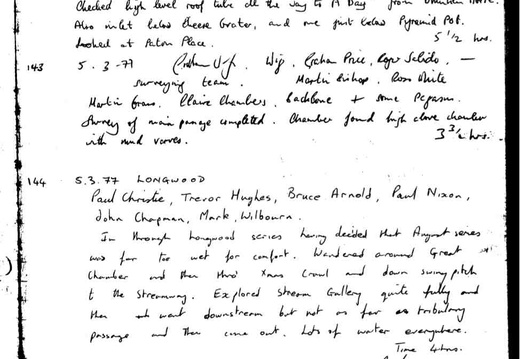 Checked high level roof tube all the way to A Day from
Also inlet below Cheese Grater, and one just below Pyramid Pot.
Looked at Paton Place. 5 1/2 hrs.
143 5.3.77 Wig, Graham Price, Roger —
surveying team. Martin Bishop, Ross White
Martin Claire Chambers, + some
Survey of main passage completed. Chamber found high above chamber
with mud 3 3/4 hrs.
144 5.3.77 LONGWOOD
Paul Christie, Trevor Hughes, Bruce Arnold, Paul Nixon,
John Chapman, Mark, Wilbourn.
In through Longwood series having decided that August series
was far too wet for comfort. Wandered around Great
Chamber and then thro' Xmas Crawl and down swing pitch
to the Streamway. Explored Stream Gallery quite fully and
then went downstream but not as far as tributary
passage and then came out. Lots of water everywhere.
Time 4hrs.